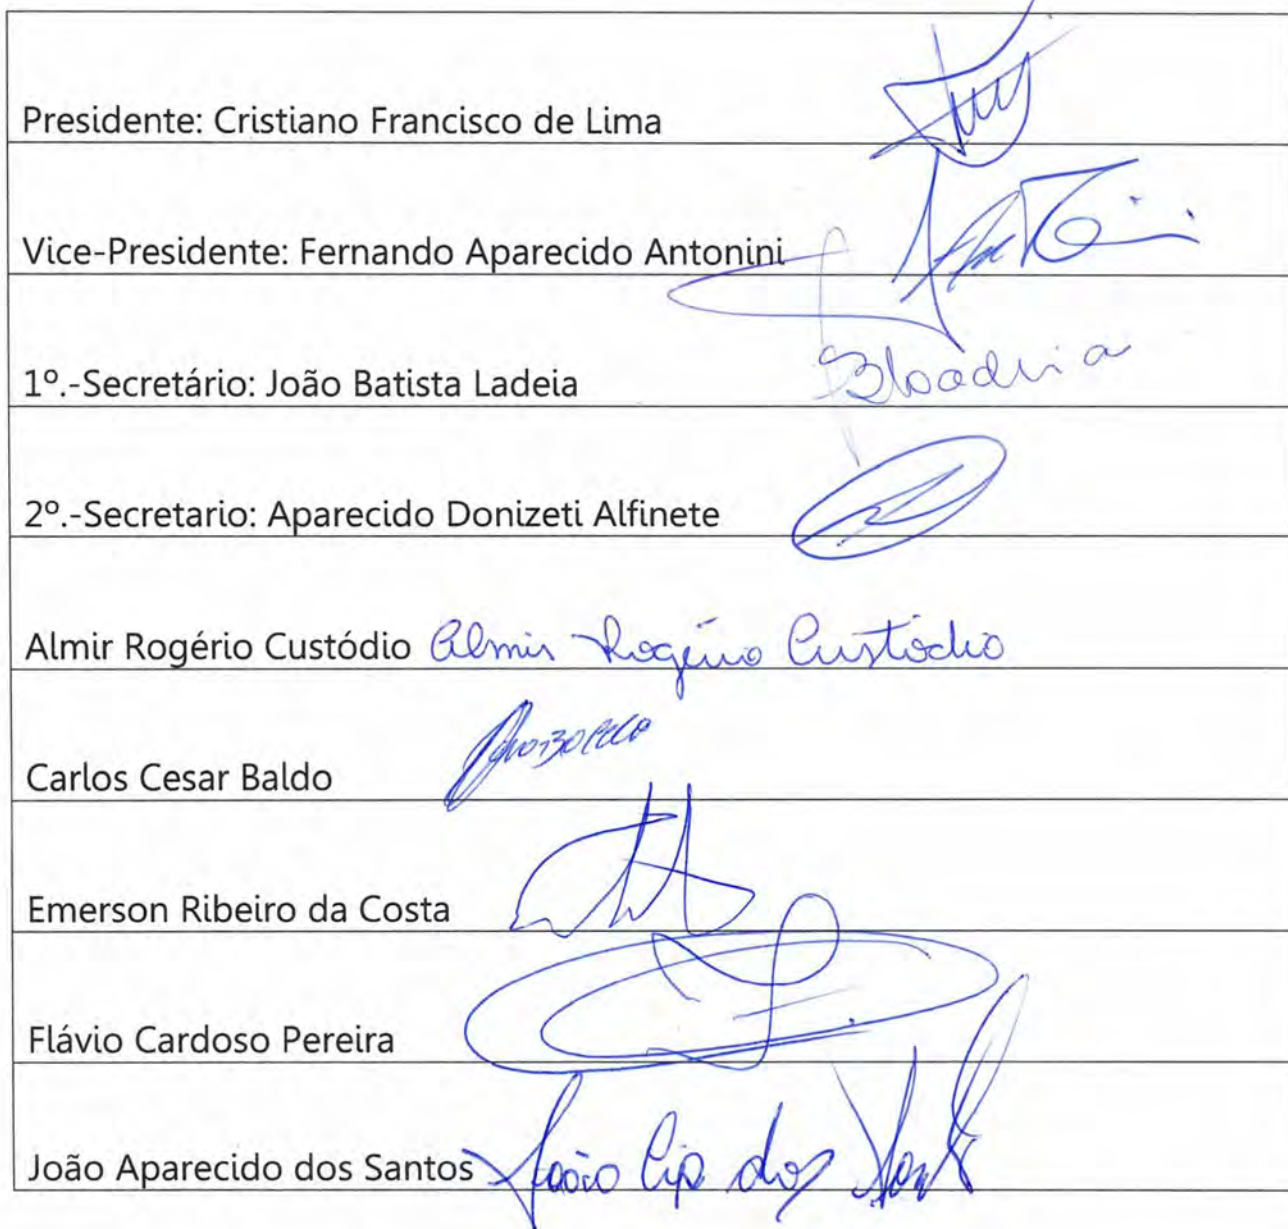 Presidente: Cristiano Francisco de Lima
Vice-Presidente: Fernando Aparecido Antonini
1º.-Secretário: João Batista Ladeia
2º.-Secretario: Aparecido Donizeti Alfinete
Almir Rogério Custódio Almir Rogério Custódio
Carlos Cesar Baldo
Emerson Ribeiro da Costa
Flávio Cardoso Pereira
João Aparecido dos Santos João Ap. dos Santos